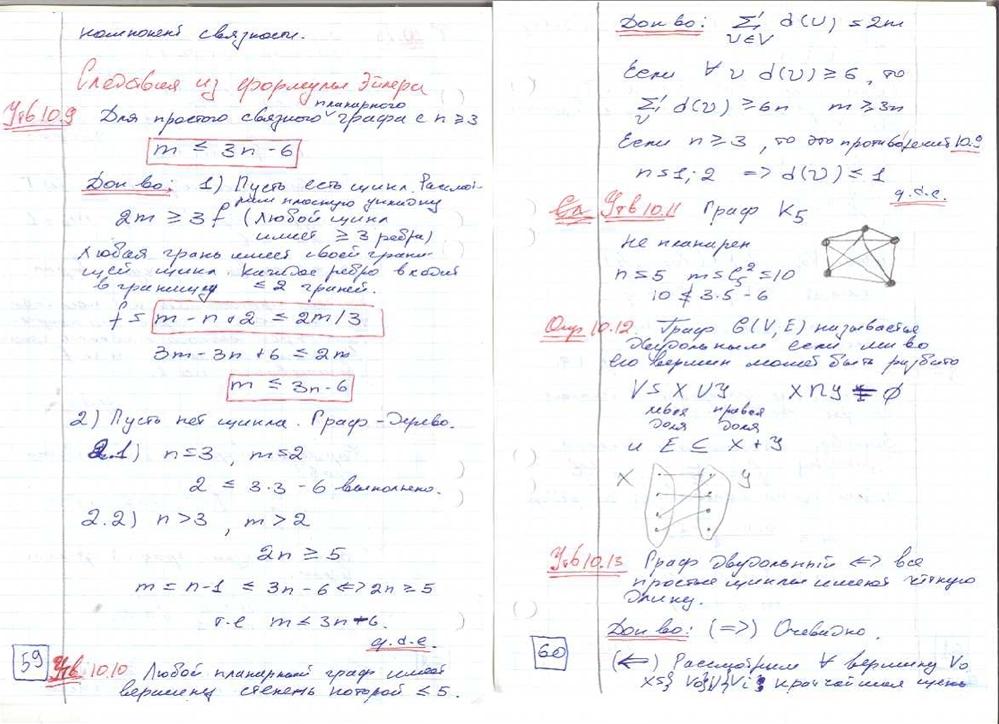 компонент связности.
Следствия из формулы Эйлера
Утв 10.9 Для простого связного планарного графа с n ≥ 3
m ≤ 3n - 6
Док во: 1) Пусть есть цикл. Рассмот-
рим плоскую укладку
2m ≥ 3f (Любой цикл
имеет ≥ 3 ребра)
Любая грань имеет своей грани-
цей цикл. Каждое ребро входит
в границу ≤ 2 граней.
f = m - n + 2 ≤ 2m/3
3m - 3n + 6 ≤ 2m
m ≤ 3n - 6
2) Пусть нет цикла. Граф - дерево.
2.1) n = 3, m = 2
2 ≤ 3·3 - 6 выполнено.
2.2) n > 3, m > 2
2n ≥ 5
m = n - 1 ≤ 3n - 6 <=> 2n ≥ 5
т.е m ≤ 3n - 6.
q.d.e.
59
Утв 10.10 Любой планарный граф имеет
вершину степень которой ≤ 5.
Док во: Σ d(v) = 2m
v∈V
Если ∀ v d(v) ≥ 6, то
Σ d(v) ≥ 6n m ≥ 3n
v
Если n ≥ 3, то это противоречит 10.9
n = 1; 2 => d(v) ≤ 1
q.d.e.
Утв 10.11 Граф K5
не планарен
n = 5 m = C₅² = 10
10 ≰ 3·5 - 6
Опр 10.12. Граф G(V, E) называется
двудольным если мн во
его вершин может быть разбито
V = X ∪ Y X ∩ Y = ∅
левая правая
доля доля
и E ⊆ X × Y
X Y
Утв 10.13 Граф двудольный <=> все
простые циклы имеют чётную
длину.
Док во: (=>) Очевидно.
60
(<=) Рассмотрим ∀ вершину V₀
кратчайшая цепь